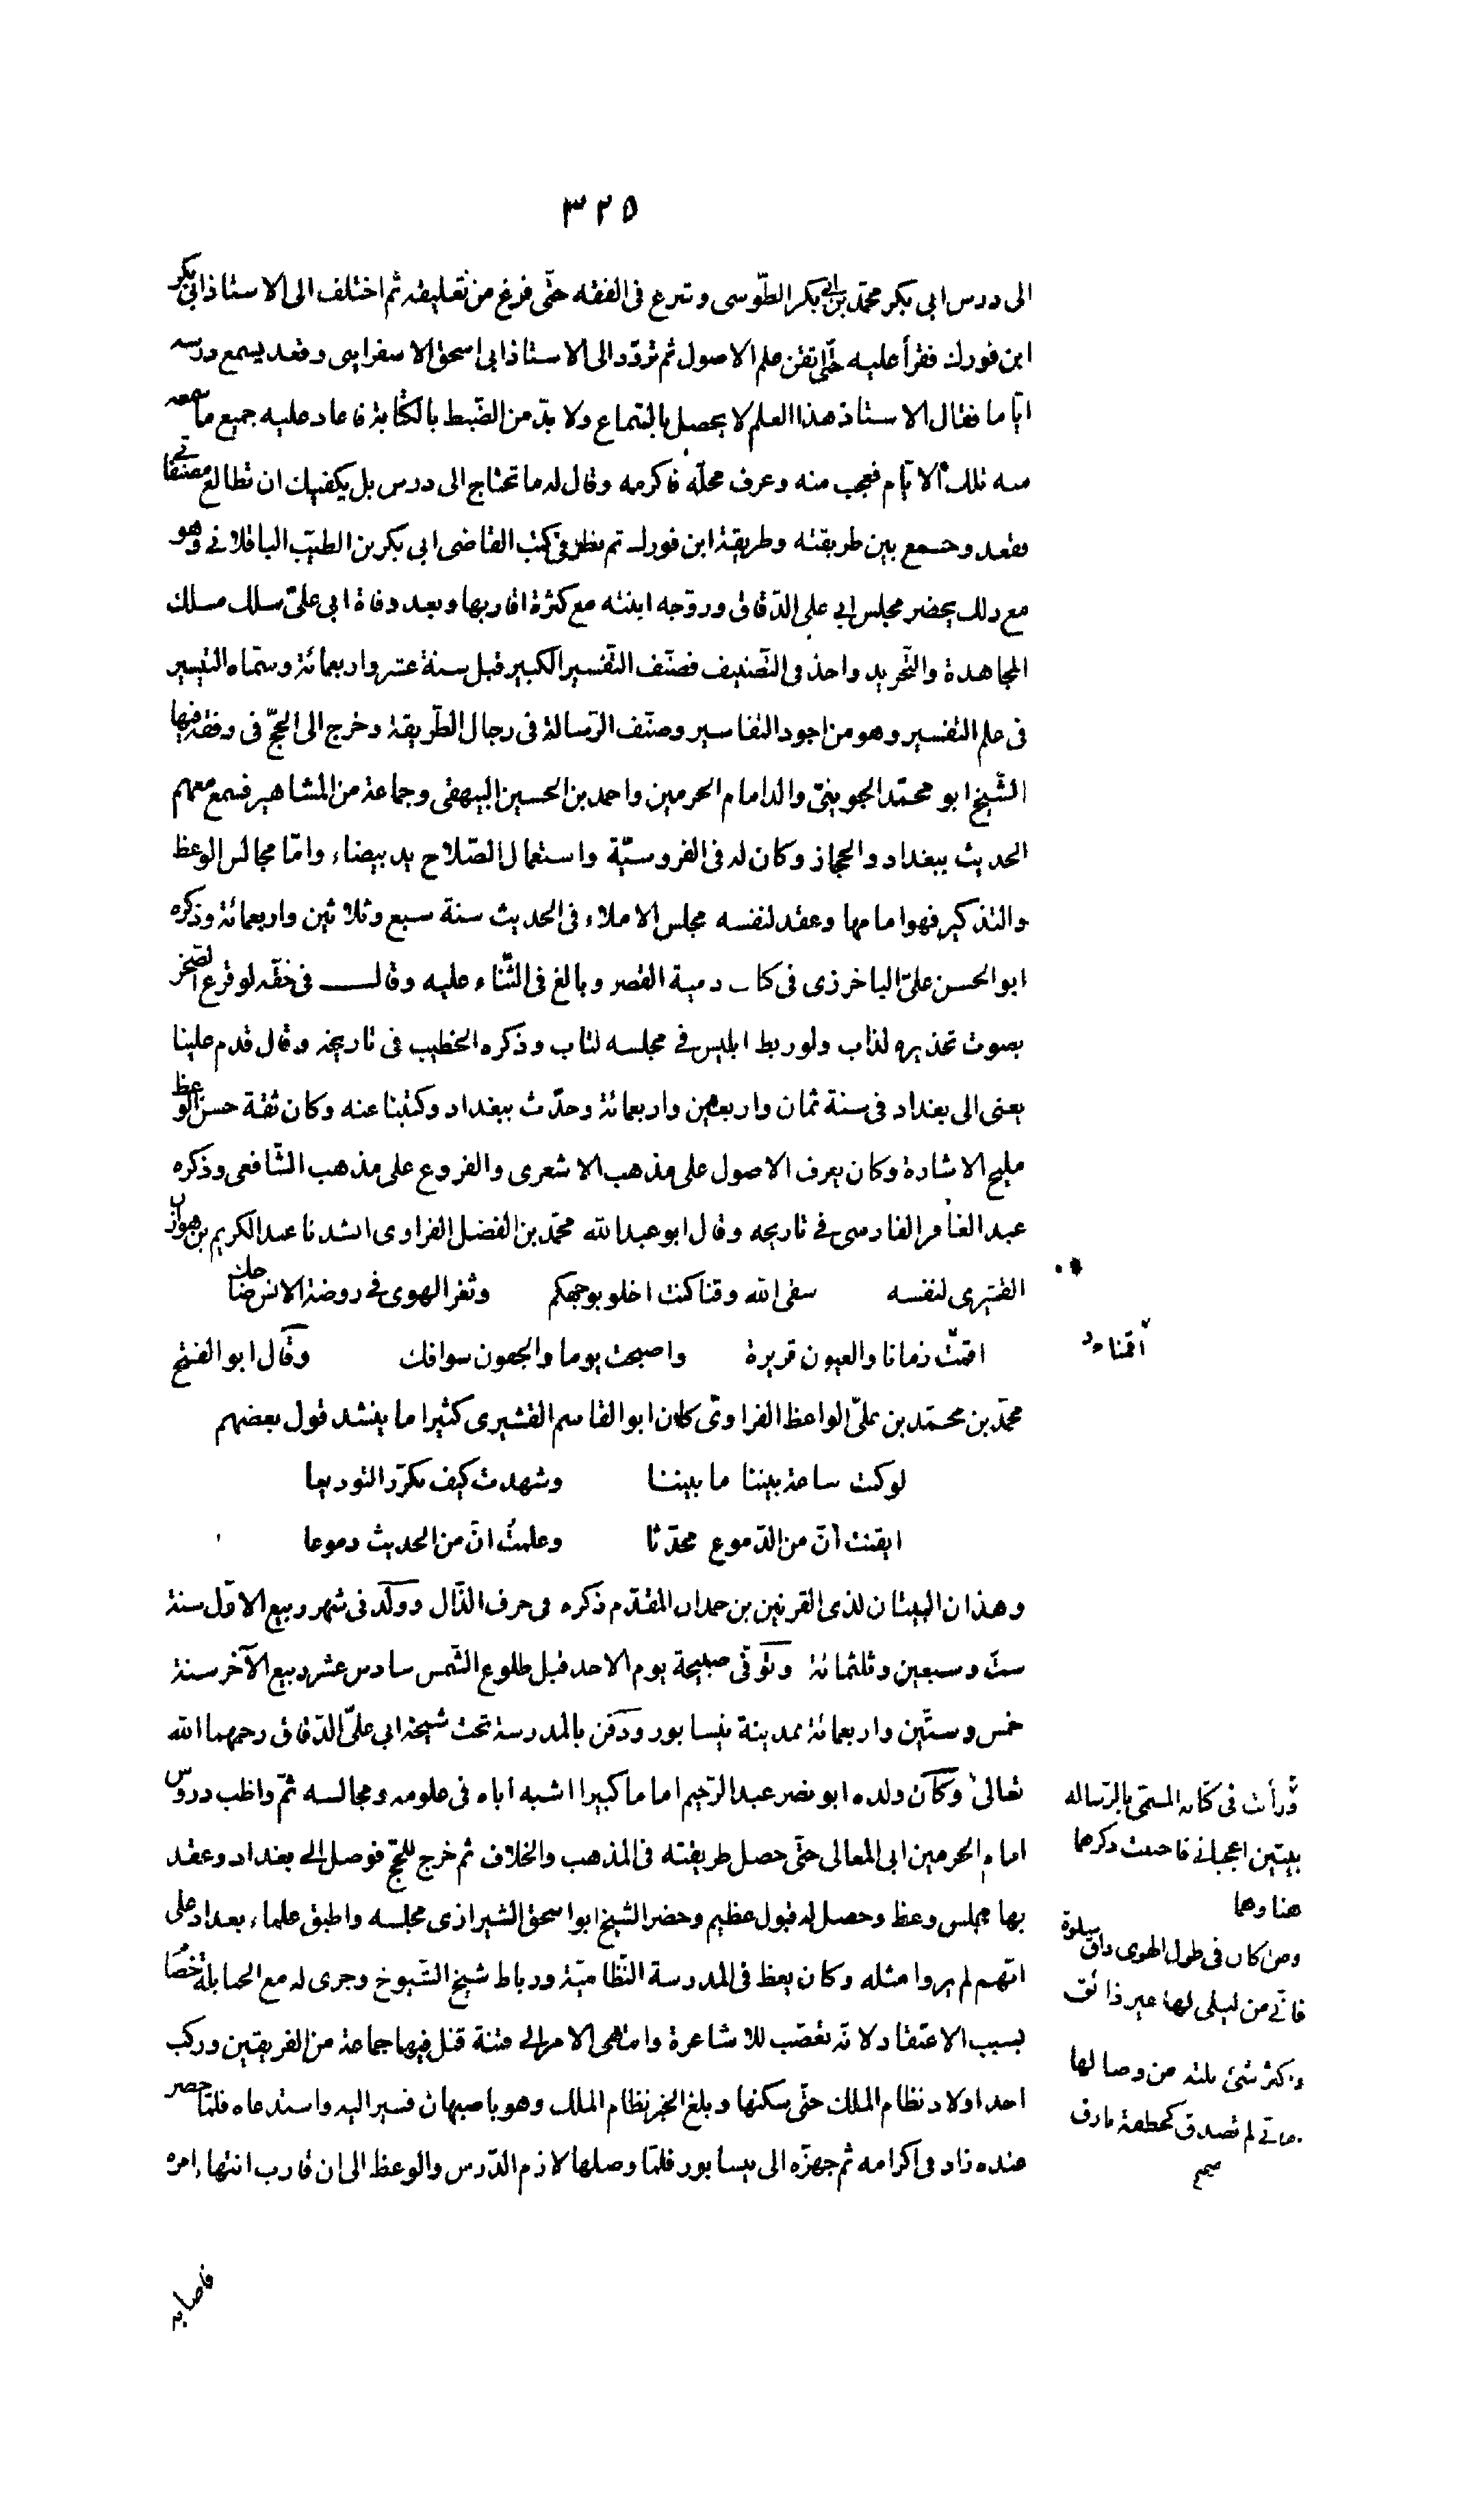 ٣٢٥
الى درس ابى بكر محمّد بن ابى بكر الطّوسى وشرع فى الفقه حتّى فرغ من تعليقه ثم اختلف الى الاستاذ ابى بكر
ابن فورك فقرأ عليه حتّى اتقن علم الاصول ثم تردّد الى الاستاذ ابى اسحق الاسفراينى وقعد يسمع درسه
ايّاما فقال الاستاذ هذا العلم لا يحصل بالسّماع ولا بدّ من الضّبط بالكتابة فاعاد عليه جميع ما سمعه
منه تلك الايّام فعجب منه وعرف محلّه فاكرمه وقال له ما تحتاج الى درس بل يكفيك ان تطالع مصنّفاتى
فقعد وجمع بين طريقته وطريقة ابن فورك ثم نظر فى كتب القاضى ابى بكر بن الطيّب الباقلانى وهو
مع ذلك يحضر مجلس ابى على الدّقاق وزوّجه ابنته مع كثرة اقاربها وبعد وفاة ابى علىّ سلك مسلك
المجاهدة والتّجريد واخذ فى التّصنيف فصنّف التّفسير الكبير قبل سنة عشر واربعمائة وسمّاه التيسير
فى علم التفسير وهو من اجود التفاسير وصنّف الرّسالة فى رجال الطّريقة وخرج الى الحجّ فى رفقة فيها
الشّيخ ابو محمّد الجوينىّ والد امام الحرمين واحمد بن الحسين البيهقى وجماعة من المشاهير فسمع معهم
الحديث ببغداد والحجاز وكان له فى الفروسيّة واستعمال الصّلاح يد بيضاء وامّا مجالس الوعظ
والتذكير فهو امامها وعقد لنفسه مجلس الاملاء فى الحديث سنة سبع وثلاثين واربعمائة وذكره
ابو الحسن علىّ الباخرزى فى كتاب دمية القصر وبالغ فى الثّناء عليه وقال فى حقّه لو قرع الصّخر
بصوت تحذيره لذاب ولو ربط ابليس فى مجلسه لتاب وذكره الخطيب فى تاريخه وقال قدم علينا
يعنى الى بغداد فى سنة ثمان واربعين واربعمائة وحدّث ببغداد وكتبنا عنه وكان ثقة حسن الوعظ
مليح الاشارة وكان يعرف الاصول على مذهب الاشعرى والفروع على مذهب الشّافعى وذكره
عبد الغافر الفارسى فى تاريخه وقال ابو عبد الله محمّد بن الفضل الفراوى انشدنا عبد الكريم بن هوازن
القشيرى لنفسه سقى الله وقتا كنت اخلو بوجهكم وثغر الهوى فى روضة الانس ضاحك
اقمت زمانا والعيون قريرة واصبحت يوما والجفون سوافك وقال ابو الفتح
اقمنا
محمّد بن محمّد بن علىّ الواعظ الفراوىّ كان ابو القاسم القشيرى كثيرا ما ينشد قول بعضهم
لو كنت ساعة بيننا ما بيننا وشهدت كيف نكرّر التوديعا
ايقنت انّ من الدّموع محدّثا وعلمت انّ من الحديث دموعا
وهذان البيتان لذى القرنين بن حمدان المقدّم ذكره فى حرف الذّال وولد فى شهر ربيع الاوّل سنة
ستّ وسبعين وثلثمائة وتوفّى صبيحة يوم الاحد قبل طلوع الشّمس سادس عشر ربيع الآخر سنة
خمس وستّين واربعمائة بمدينة نيسابور ودفن بالمدرسة تحت شيخه ابى علىّ الدّقاق رحمهما الله
تعالى وكان ولده ابو نصر عبد الرّحيم اماما كبيرا اشبه اباه فى علومه ومجالسه ثمّ واظب دروس
امام الحرمين ابى المعالى حتّى حصل طريقته فى المذهب والخلاف ثم خرج للحجّ فوصل الى بغداد وعقد
بها مجلس وعظ وحصل له قبول عظيم وحضر الشيخ ابو اسحق الشيرازى مجلسه واطبق علماء بغداد على
انّهم لم يروا مثله وكان يعظ فى المدرسة النّظاميّة ورباط شيخ الشّيوخ وجرى له مع الحنابلة خصام
بسبب الاعتقاد لانّه تعصّب للاشاعرة وانتهى الامر الى فتنة قتل فيها جماعة من الفريقين وركب
احد اولاد نظام الملك حتّى سكنها وبلغ الخبر نظام الملك وهو باصبهان فسير اليه واستدعاه فلمّا حضر
عنده زاد فى اكرامه ثم جهزّه الى نيسابور فلمّا وصلها لازم الدّرس والوعظ الى ان قارب انتهاء امره
ورأيت فى كتابه المسمّى بالرّسالة
بيتين اعجبانى فاحببت ذكرهما
هنا وهما
ومن كان فى طول الهوى ذاق سلوة
فانّى من ليلى لها غير ذائق
واكثر شئ نلته من وصالها
امانى لم تصدق كخطفة بارق
صح
فاصابه